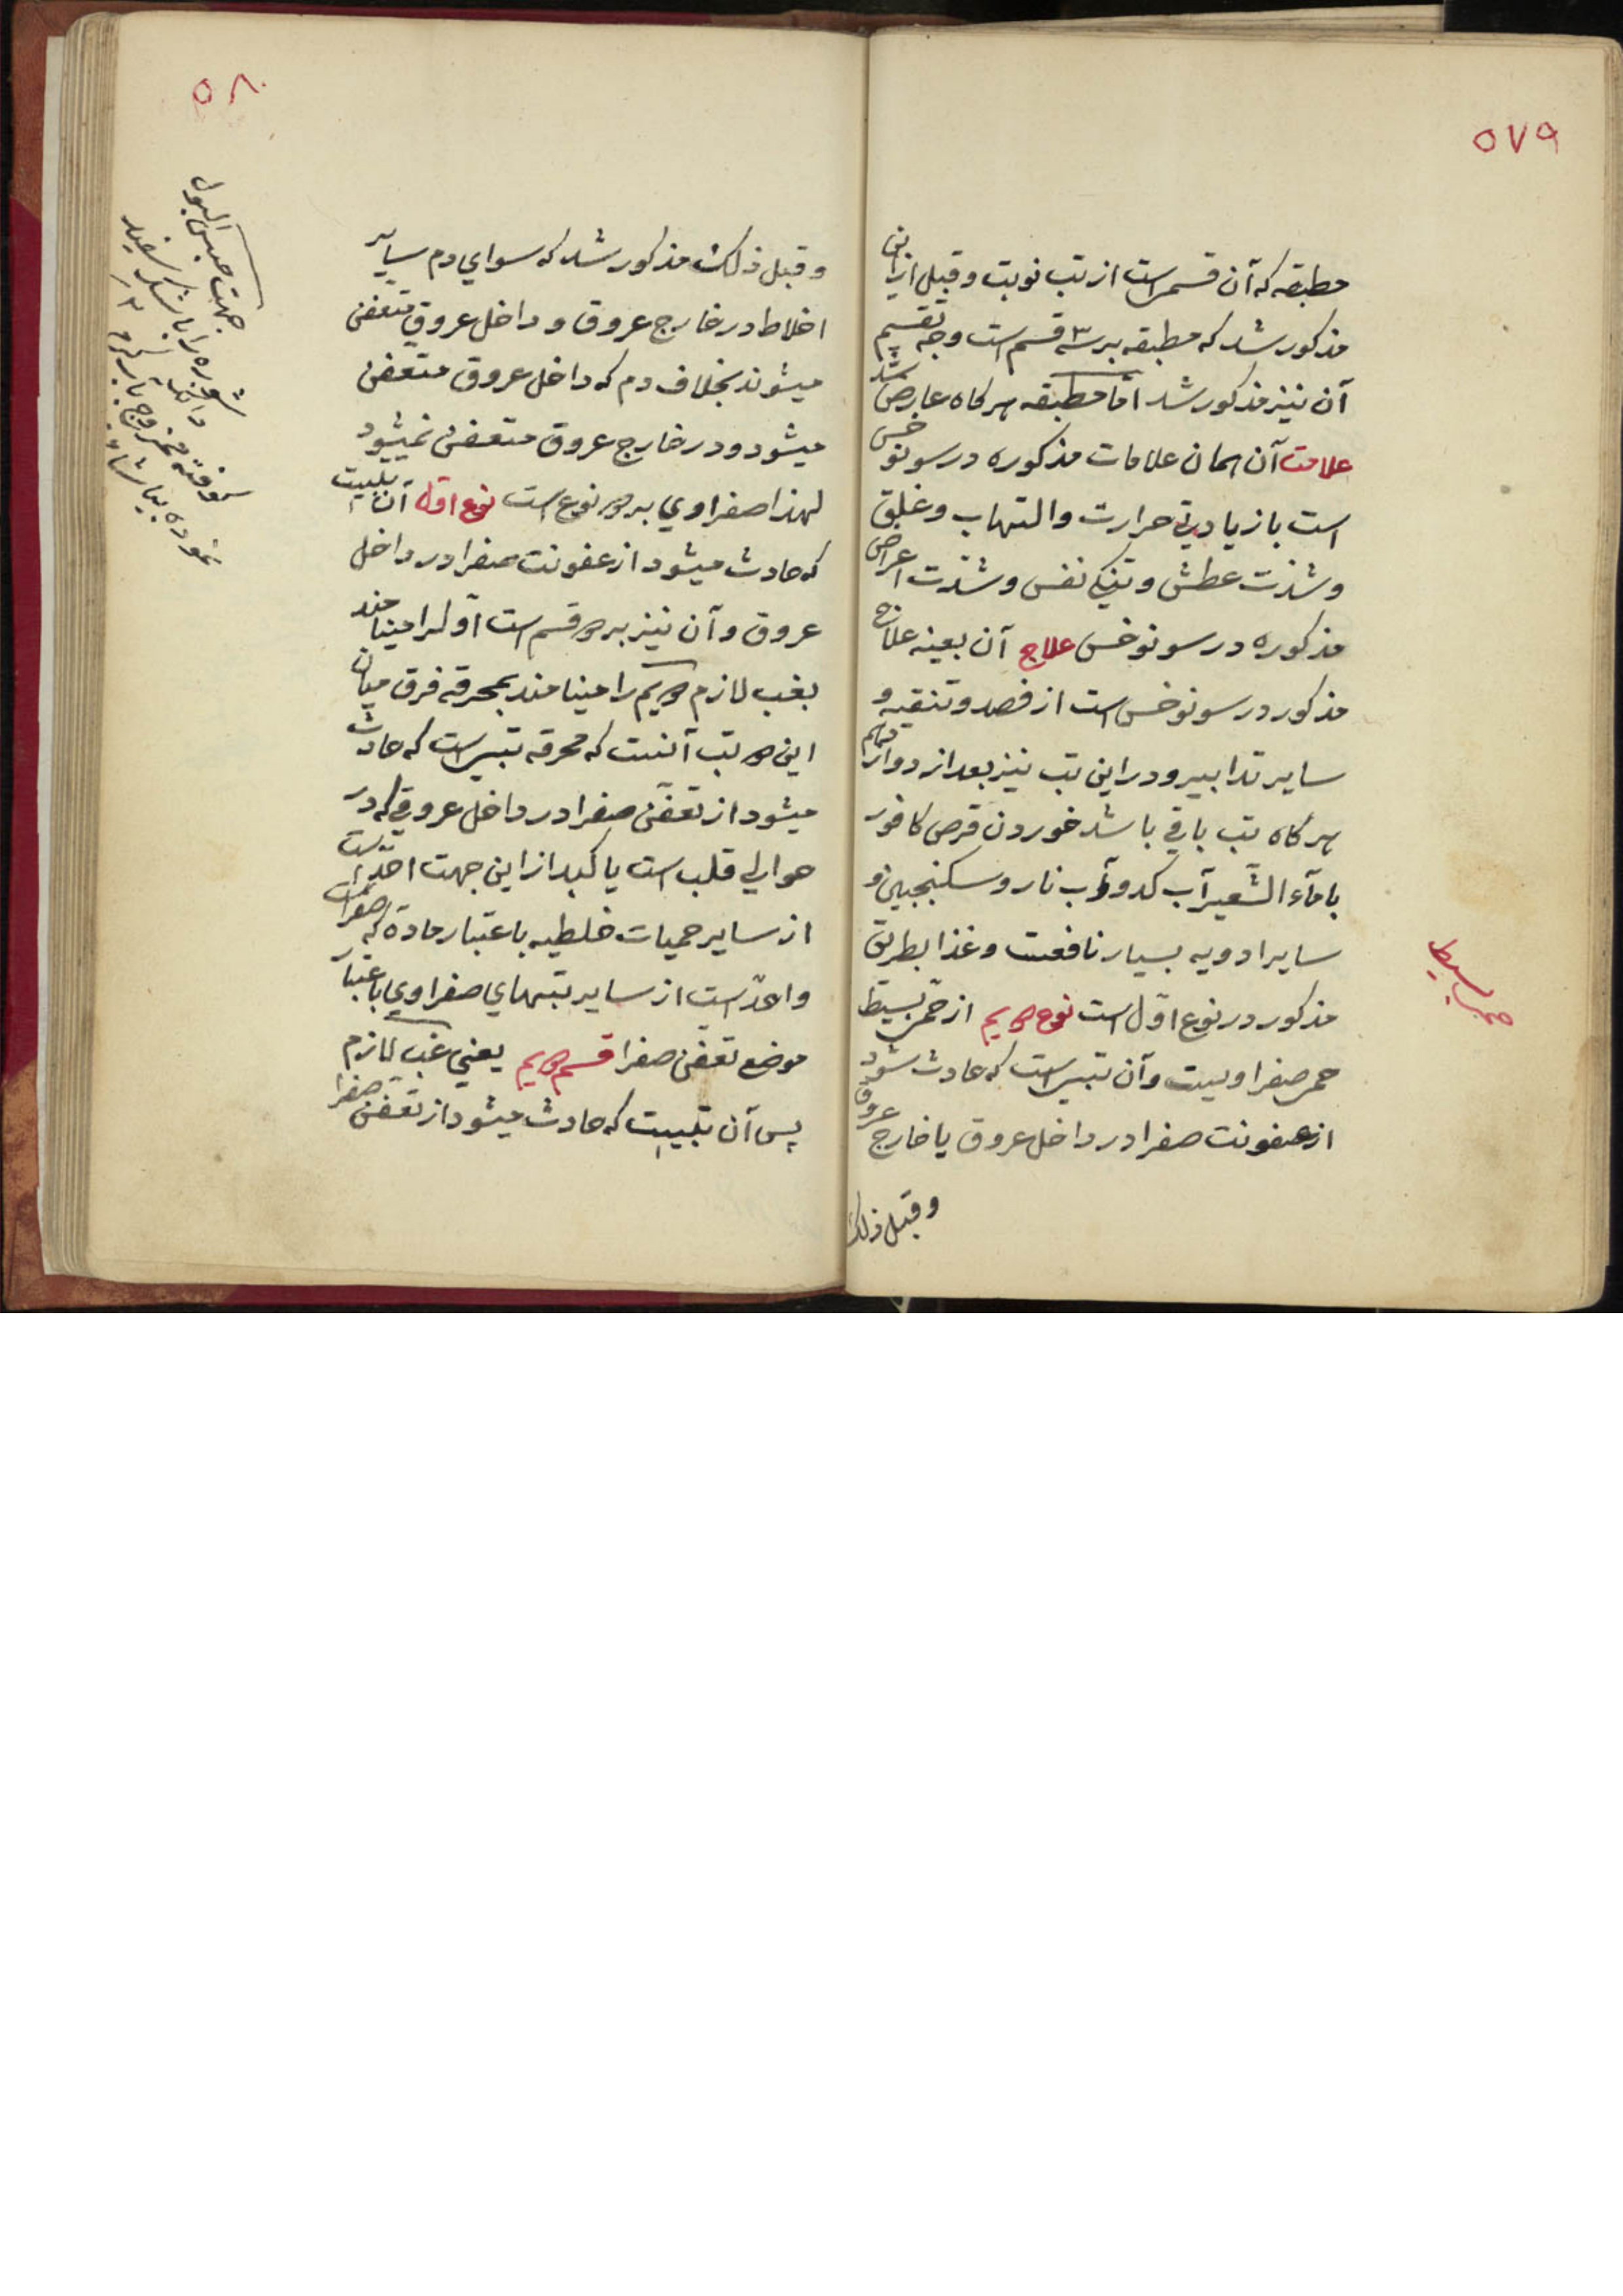 ۵۷۹
مطبقه که آن قسمی است از تب نوبت و قبل از این
مذکور شد که مطبقه بر سه قسم است وجه تقسیم
آن نیز مذکور شد اما مطبقه هرکاه عارض شد
علامت آن همان علامات مذکوره در سونوخس
است با زیادتی حرارت و التهاب و غلق
و شدت عطش و تنکی نفس و شدت اعراض
مذکوره در سونوخس علاج آن بعینه علاج
مذکور در سونوخس است از فصد و تنقیه و
سایر تدابیر و در این تب نیز بعد از دوازدهم
هرکاه تب باقی باشد خوردن قرص کافور
با مآء الشعیر آب کدو و آب نار و سکنجبین و
سایر ادویه بسیار نافعست و غذا بطریق
مذکور در نوع اول است نوع دویم از حمی بسیط
حمی صفراویست و آن تبی است که حادث شود
از عفونت صفرا در داخل عروق یا خارج عروق
و قبل ذلک
حمی بسیط
۵۸۰
و قبل ذلک مذکور شد که سوای دم سایر
اخلاط در خارج عروق و داخل عروق متعفن
میشوند بخلاف دم که داخل عروق متعفن
میشود و در خارج عروق متعفن نمیشود
لهذا صفراوی بر دو نوع است نوع اول آن تبیست
که حادث میشود از عفونت صفرا در داخل
عروق و آن نیز بر دو قسم است اول را مینامند
بغب لازم دویم را مینامند بمحرقه فرق میان
این دو تب آنست که محرقه تبی است که حادث
میشود از تعفن صفرا در داخل عروقی که در
حوالی قلب است یا کبد از این جهت احد است
از سایر حمیات خلطیه باعتبار ماده که صفراست
و احد است از سایر تبهای صفراوی باعتبار
موضع تعفن صفرا قسم دویم یعنی غب لازم
پس آن تبیست که حادث میشود از تعفن صفرا
جهت حبس البول
شوره را با شکر سفید
کوفته ممزوج بآب کرم
نموده بیاشامد